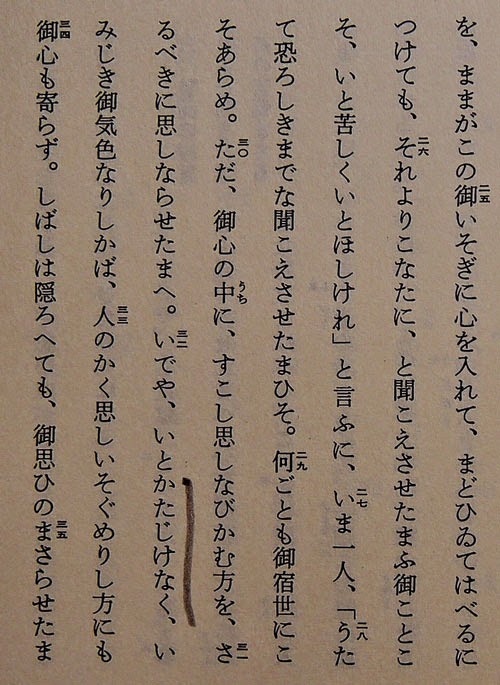 を、ままがこの御いそぎに心を入れて、まどひゐてはべるに
つけても、それよりこなたに、と聞こえさせたまふ御ことこ
そ、いと苦しくいとほしけれ」と言ふに、いま一人、「うた
て恐ろしきまでな聞こえさせたまひそ。何ごとも御宿世にこ
そあらめ。ただ、御心の中に、すこし思しなびかむ方を、さ
るべきに思しならせたまへ。いでや、いとかたじけなく、い
みじき御気色なりしかば、人のかく思しいそぐめりし方にも
御心も寄らず。しばしは隠ろへても、御思ひのまさらせたま